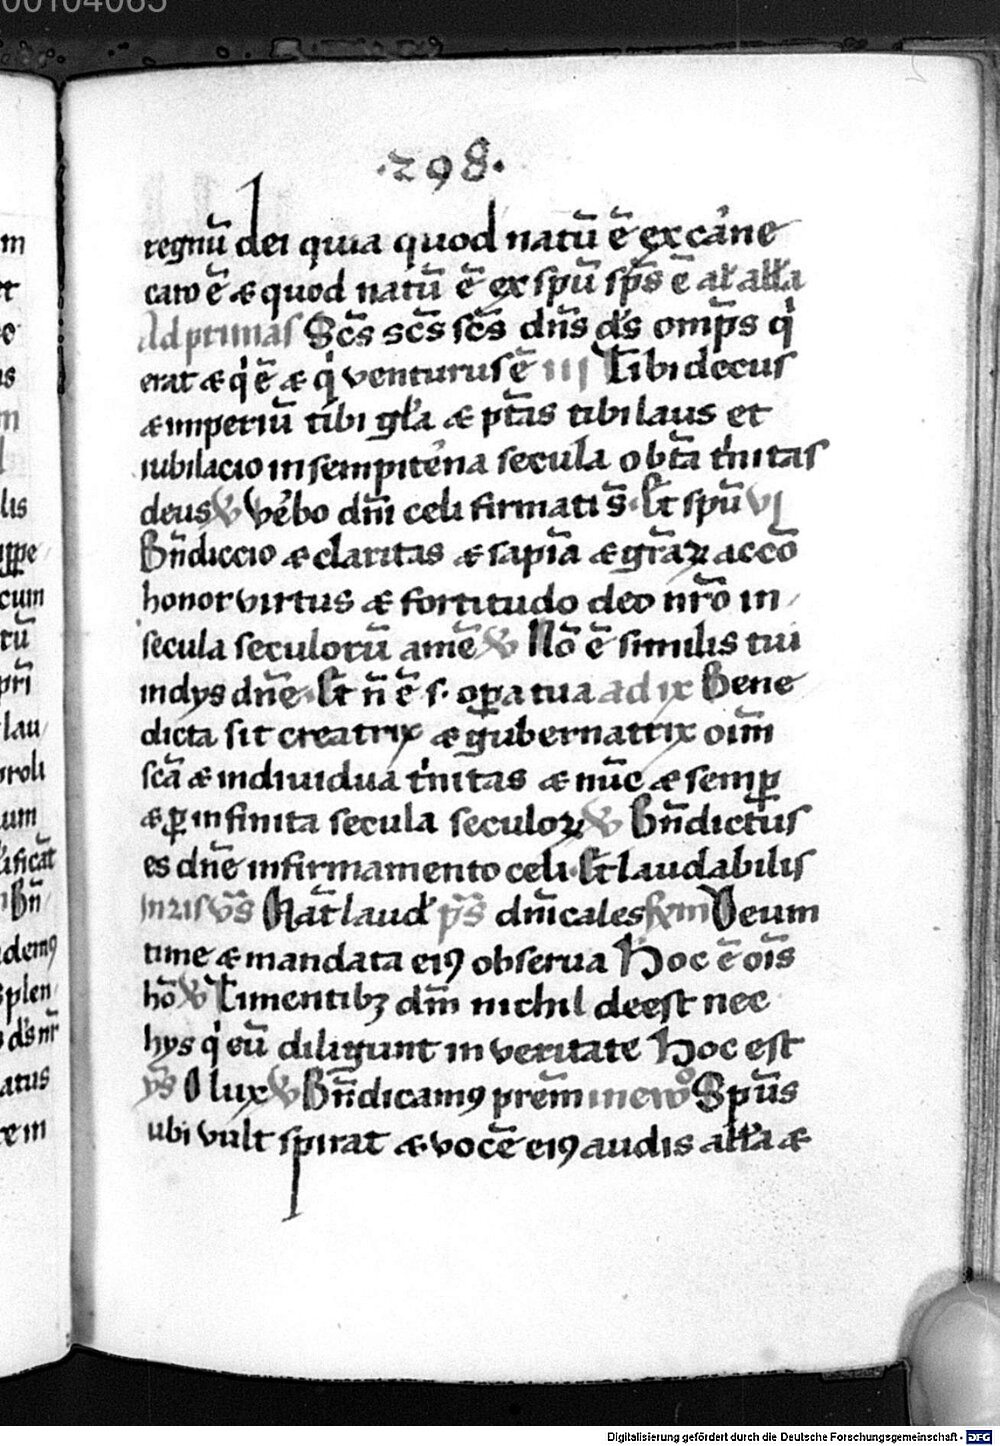 00104065
·298·
regnū dei quia quod natū ē ex carne
caro ē & quod natū ē ex spū sp̄s ē al̄ all̄a
Ad primas Sc̄s sc̄s sc̄s dn̄s d̄s omp̄s q̇
erat & q̇ ē & q̇ venturus ē iij Tibi decus
& imperiū tibi gl̄a & pt̄as tibi laus et
iubilacio in sempiterna secula o bt̄a trinitas
deus V Verbo dn̄i celi firmati s̄· Et spū vj
Bn̄diccio & claritas & sapīa & gr̄aꝝ accō
honor virtus & fortitudo deo nr̄o in
secula seculorū amē V Nō ē similis tui
in dys dn̄e· Et n̄ ē s· oꝑa tua ad ix Bene
dicta sit creatrix & gubernatrix oīm
sc̄a & indiuidua trinitas & nūc & semꝑ
& ꝑ infinita secula seculoꝝ V Bn̄dictus
es dn̄e in firmamento celi· Et laudabilis
In ij is vs̄ Nat̄ laud̄ ps̄ dn̄icales Deum
time & mandata eiꝯ obserua Hoc ē oīs
hō V Timentibꝫ dm̄ nichil deest nec
hys q̇ eū diligunt in veritate Hoc est
ys̄ O lux V Bn̄dicamꝯ prēm in ew̄o Spūs
ubi vult spirat & vocē eiꝯ audis all̄a &
Digitalisierung gefördert durch die Deutsche Forschungsgemeinschaft - DFG